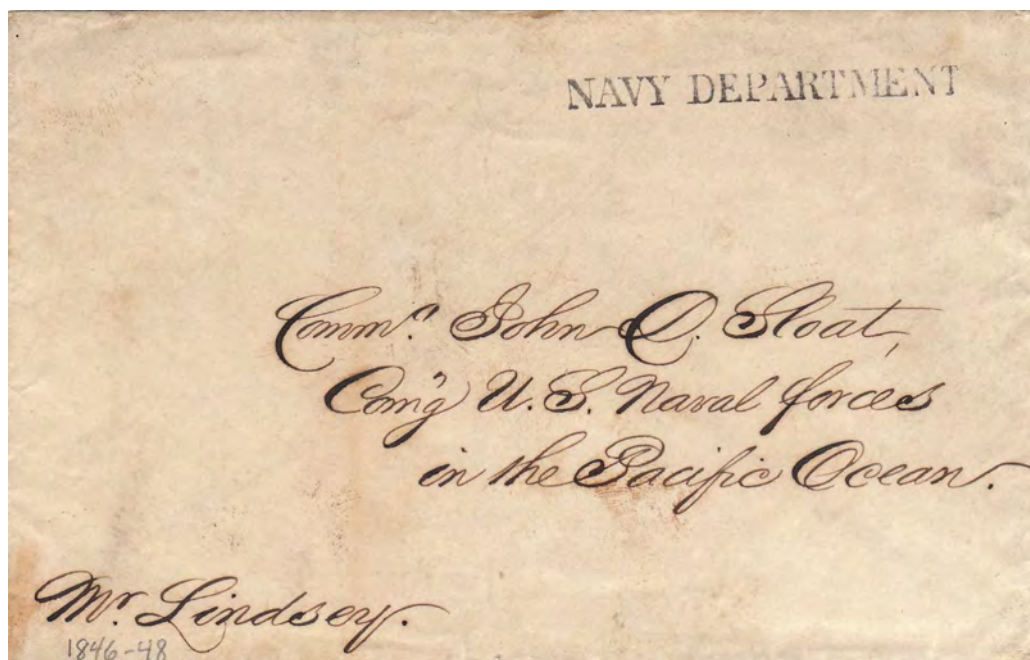 NAVY DEPARTMENT
Commr. John D. Sloat,
Com'g U. S. Naval forces
in the Pacific Ocean.
Mr. Lindsey.
1846-48